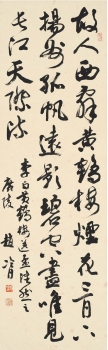 故人西辭黃鶴樓煙花三月下
揚州孤帆遠影碧空盡唯見
長江天際流
李白黃鶴樓送孟浩然之
廣陵